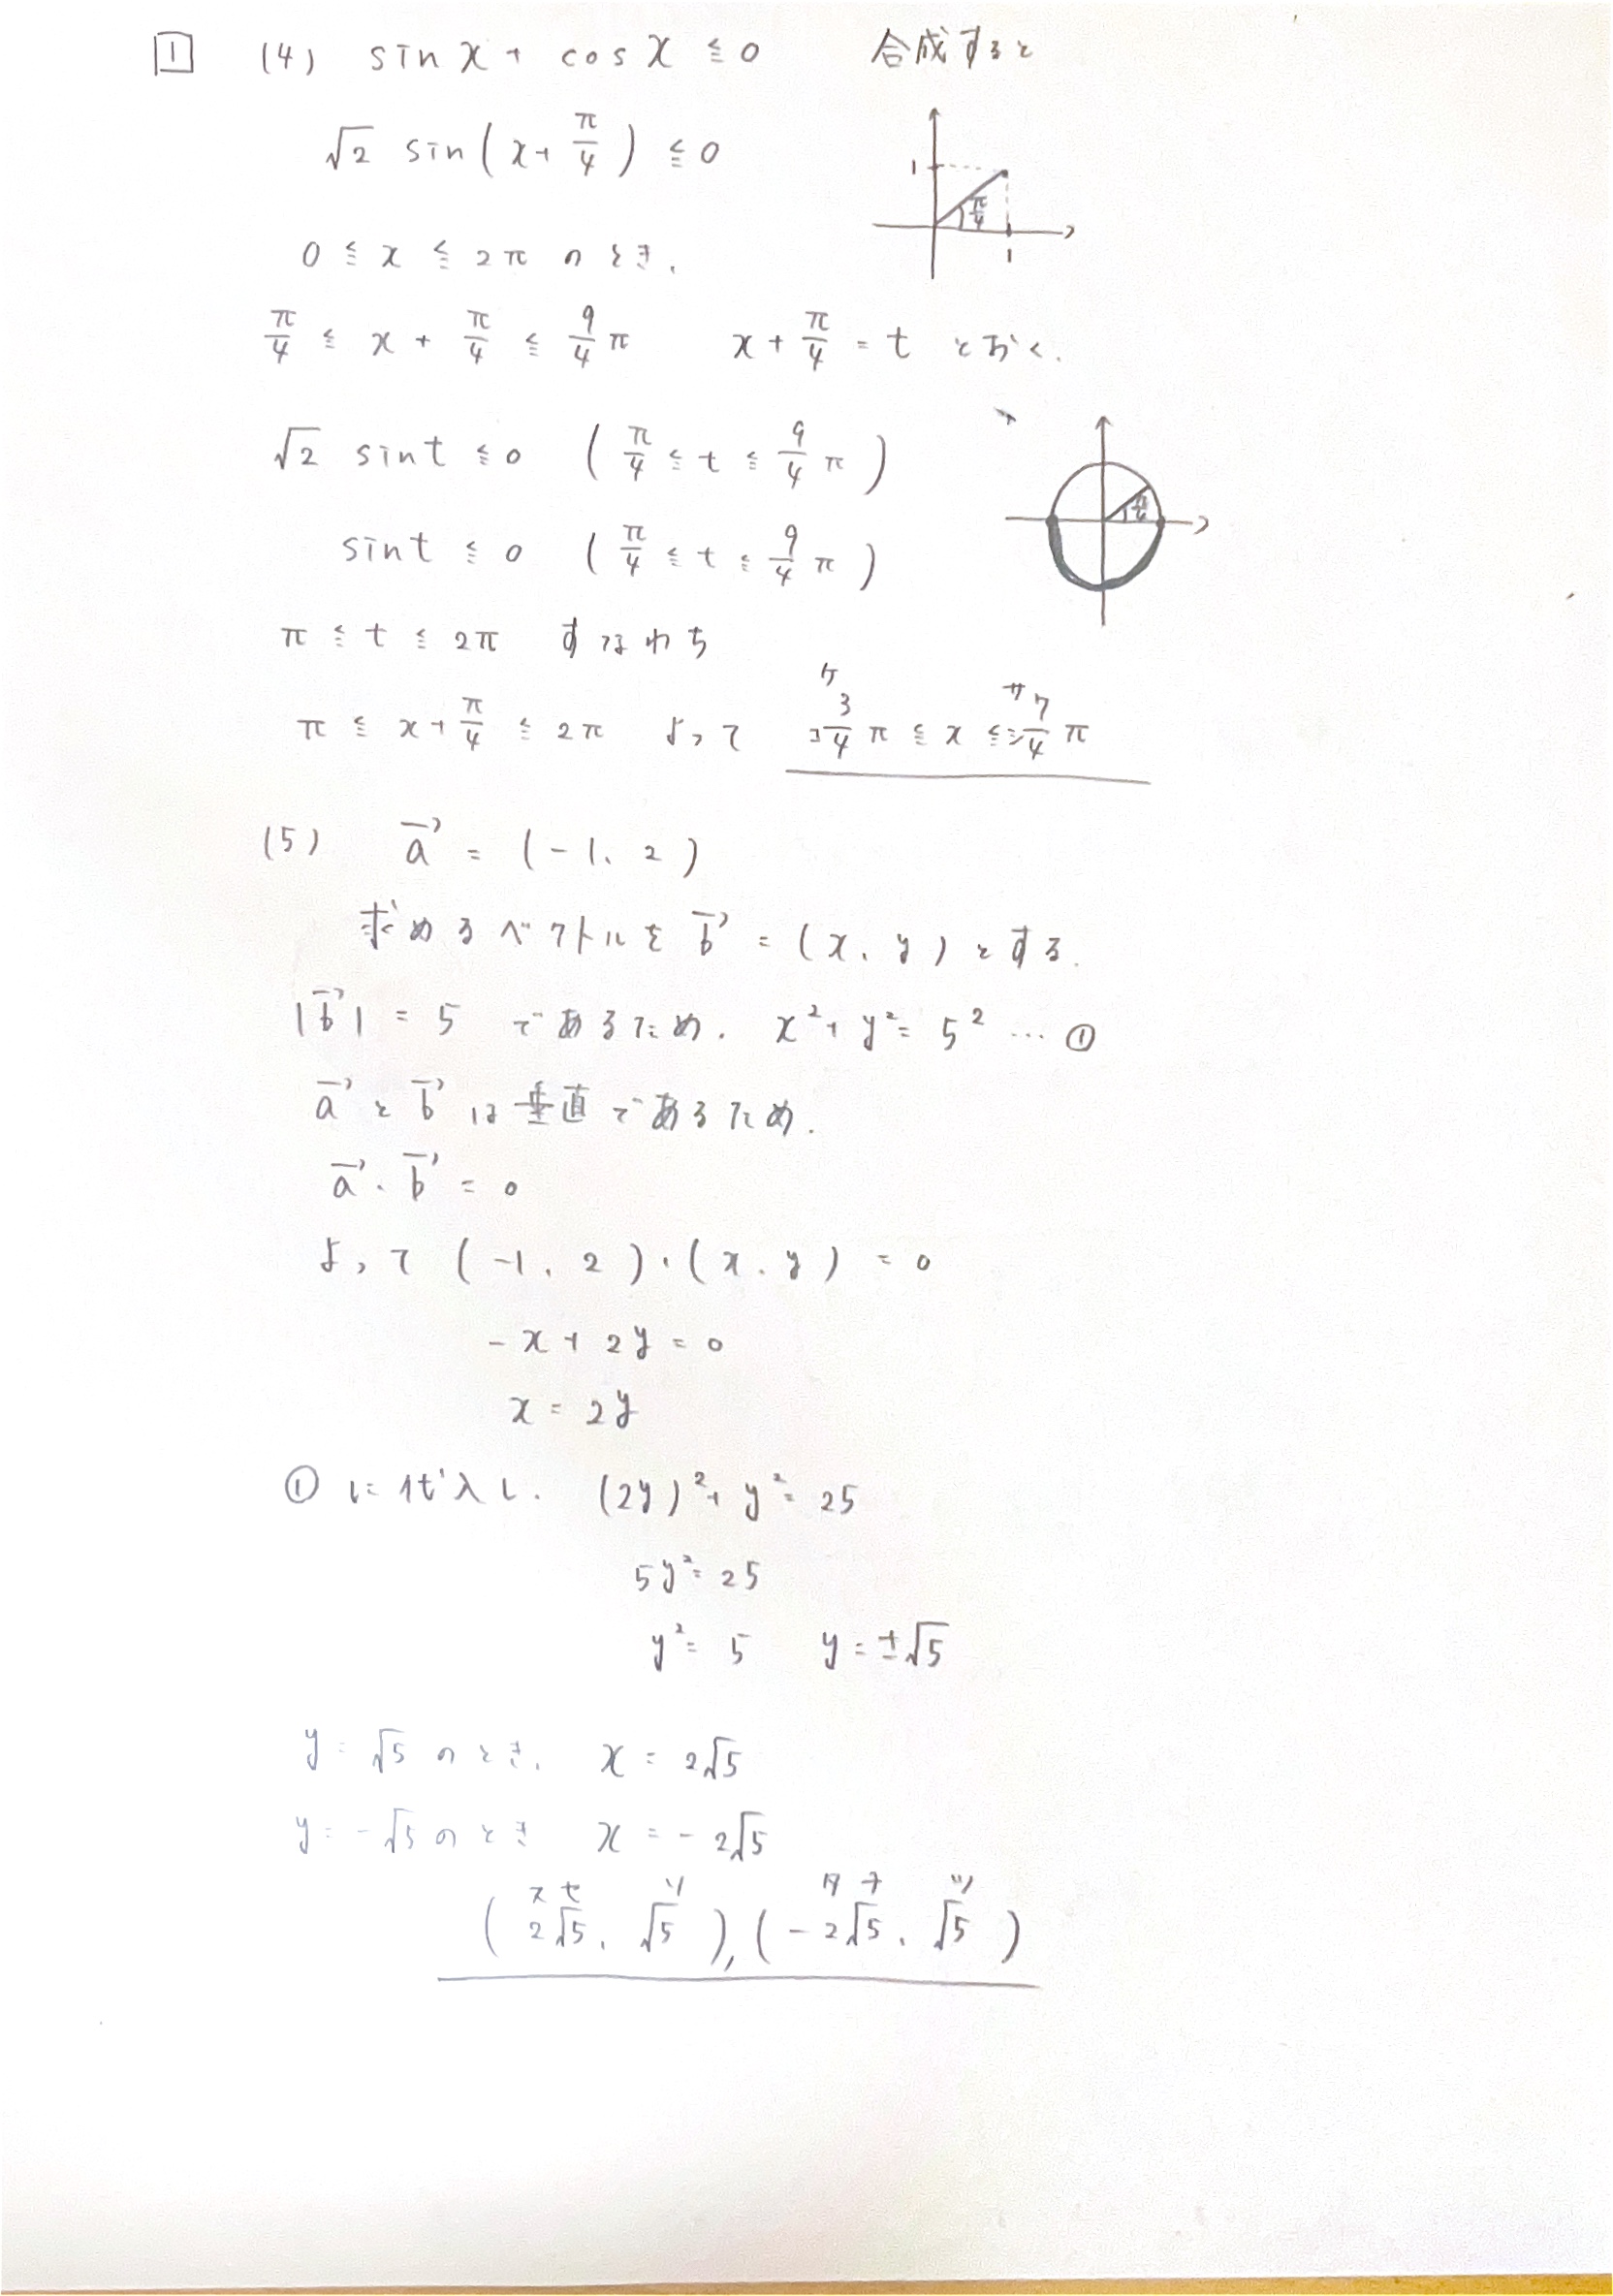 1 (4) sin x + cos x ≦ 0 合成すると
√2 sin(x + π/4) ≦ 0
1
π/4
1
0 ≦ x ≦ 2π のとき、
π/4 ≦ x + π/4 ≦ 9/4 π x + π/4 = t とおく.
√2 sin t ≦ 0 (π/4 ≦ t ≦ 9/4 π)
π/4
sin t ≦ 0 (π/4 ≦ t ≦ 9/4 π)
π ≦ t ≦ 2π すなわち
ケ サ
π ≦ x + π/4 ≦ 2π よって コ 3/4 π ≦ x ≦ シ 7/4 π
(5) a→ = (-1、2)
求めるベクトルを b→ = (x、y) とする.
|b→| = 5 であるため. x² + y² = 5² … ①
a→ と b→ は垂直であるため.
a→・b→ = 0
よって (-1、2)・(x、y) = 0
-x + 2y = 0
x = 2y
① に代入し. (2y)² + y² = 25
5y² = 25
y² = 5 y = ±√5
y = √5 のとき、 x = 2√5
y = -√5 のとき x = -2√5
ス セ ソ タ チ ツ
(2√5、√5), (-2√5、√5)